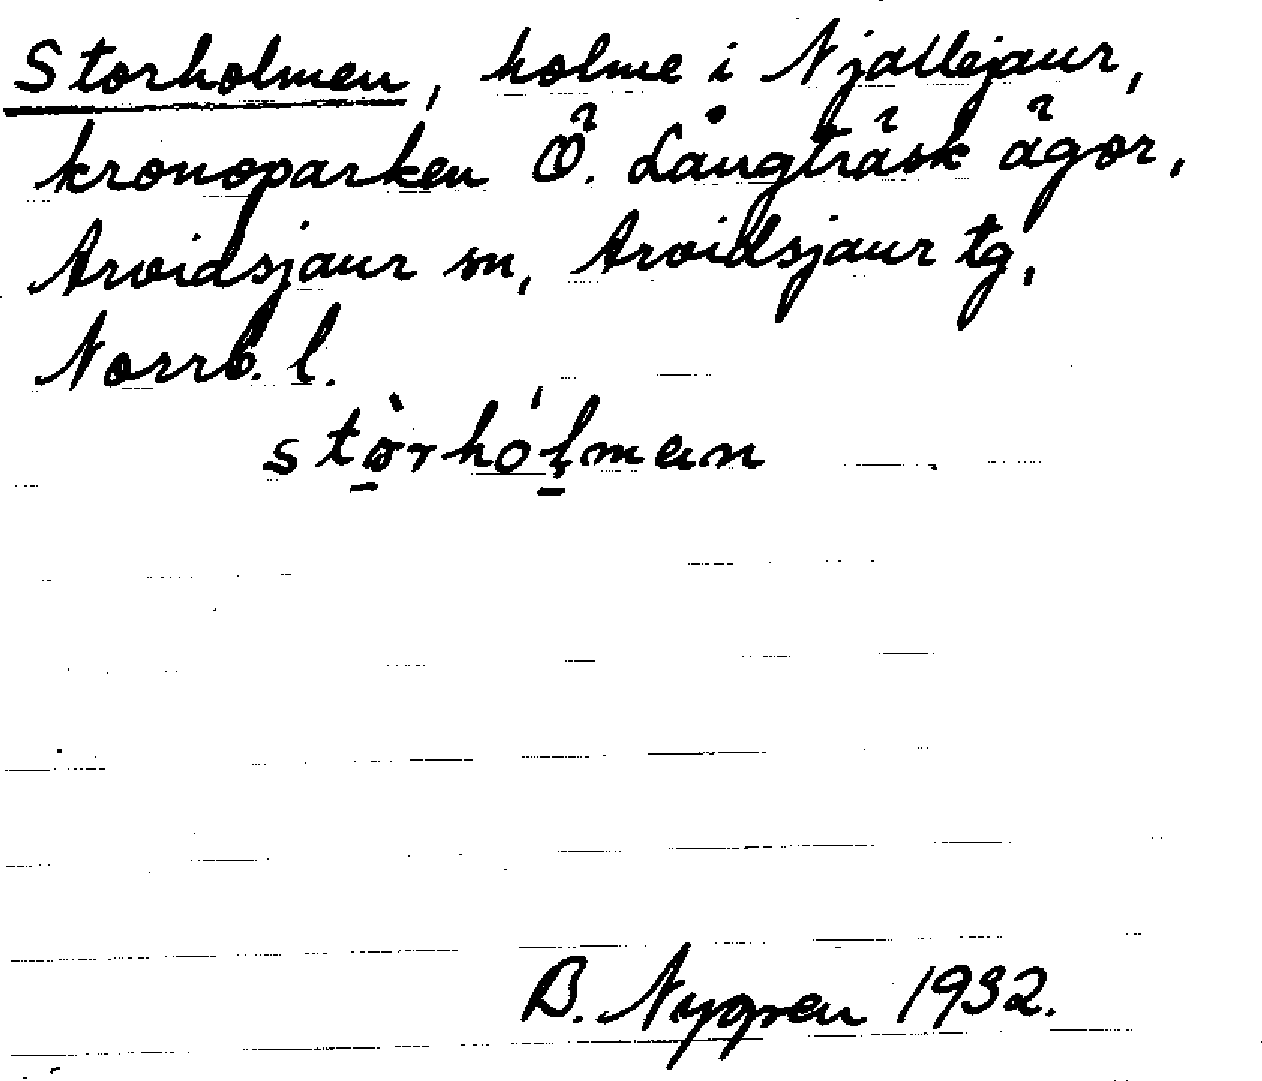 Storholmen, holme i Njallejaur,
kronoparken Ö. Långträsk ägor,
Arvidsjaur sn, Arvidsjaur tg,
Norrb. l.
stòrhólmen
B. Nygren 1932.